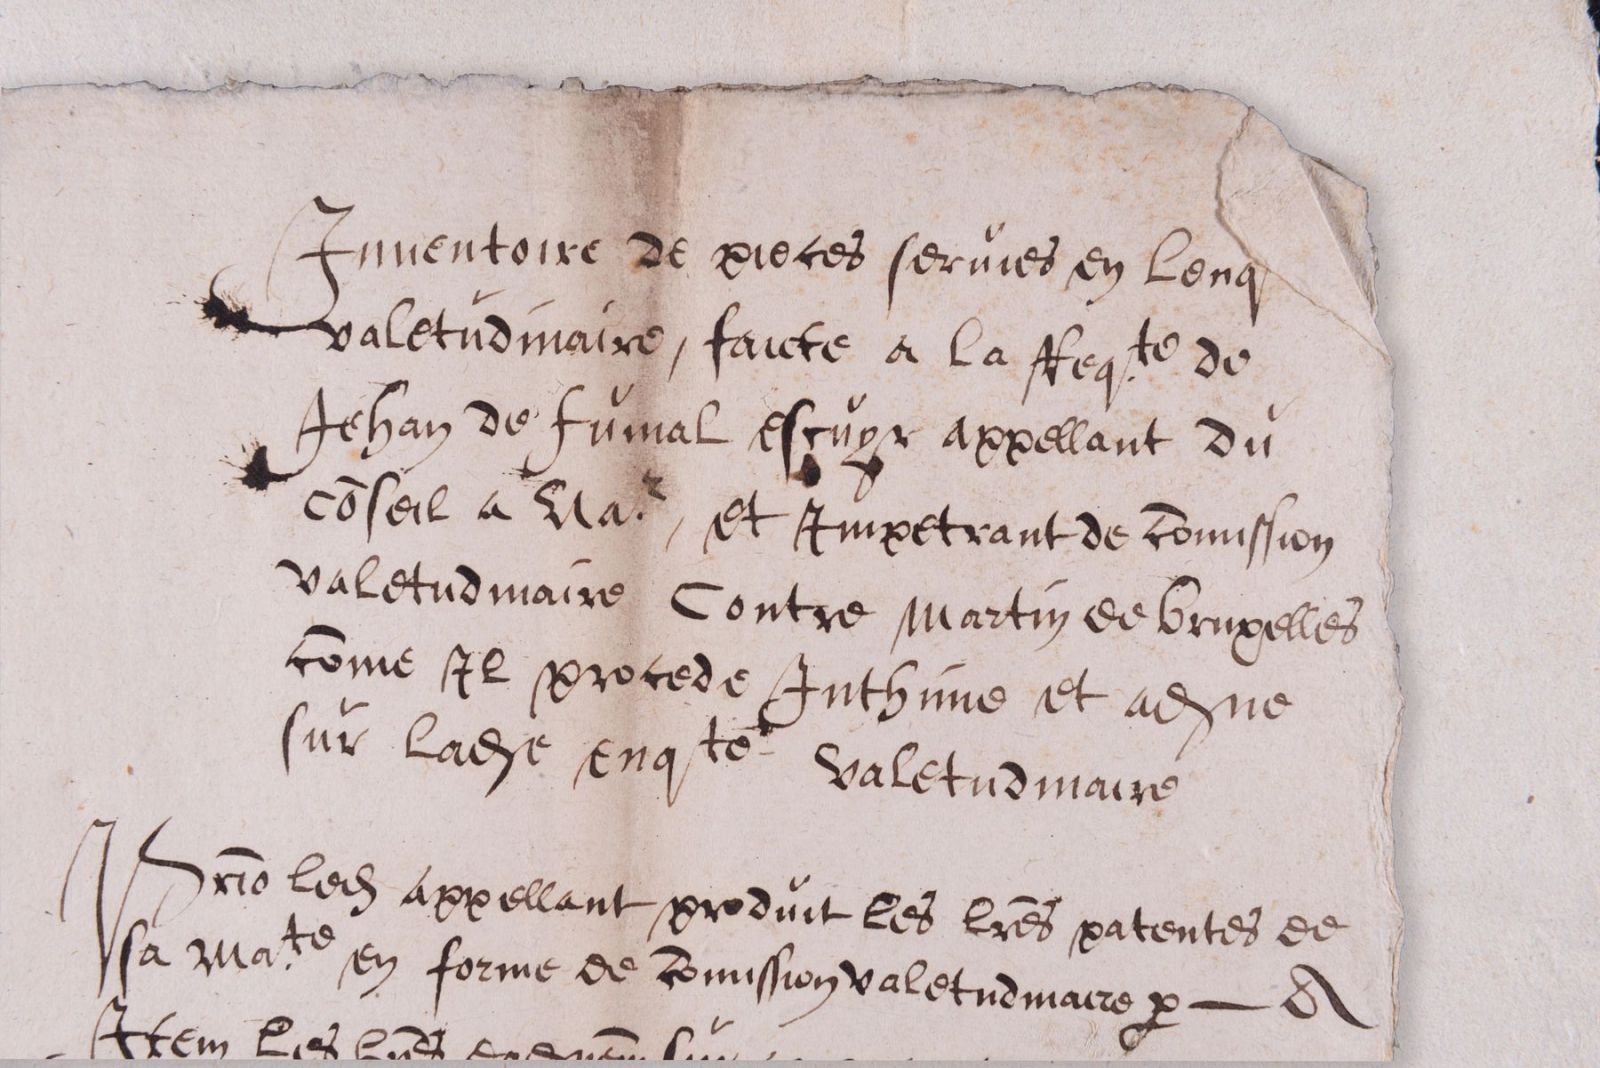 Inventoire de pieces servies en lenq
valetudinaire, faicte a la Reqte de
Jehan de fumal escuyr appellant du
cōseil a Nar, et Impetrant de cōmission
valetudinaire Contre Martin de bruxelles
cōme Il procede Inthime et adjne
sur ladte enqte valetudinaire
Prīo led appellant produit les lr̄es patentes de
sa Mate en forme de cōmission valetudinaire p — A
Item les lr̄es sur